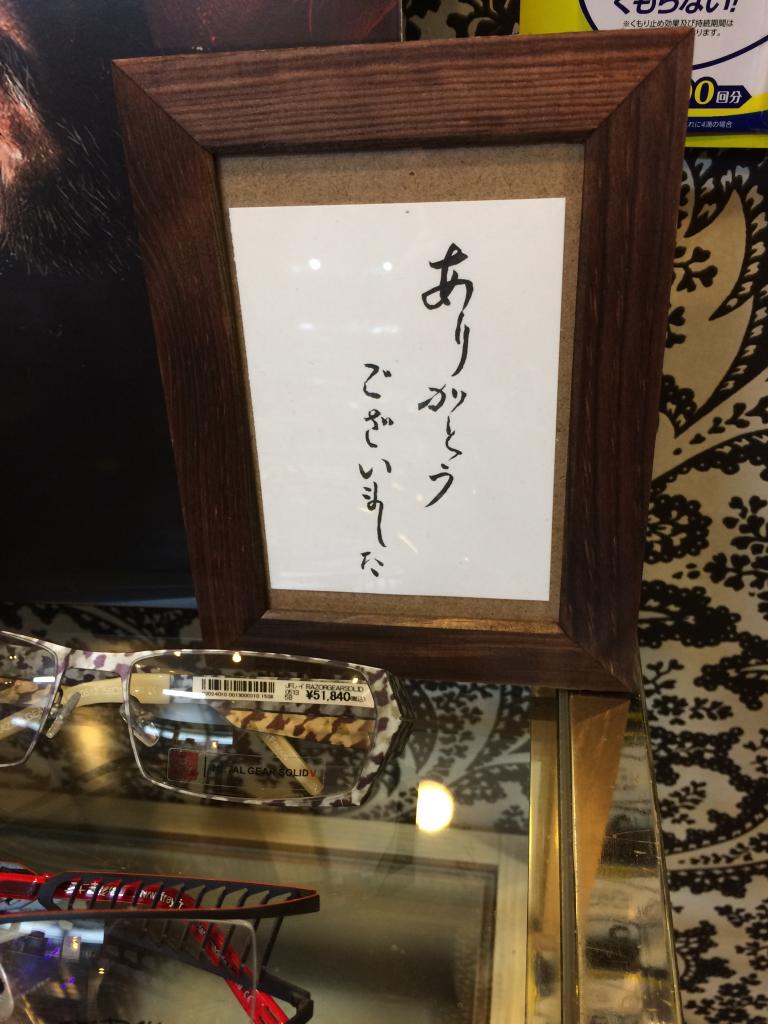 くもらない!
※くもり止め効果及び持続期間は
ります。
00回分
れに4滴の場合
ありがとう
ございました
JFレイ RAZORGEARSOLID
0513
58
¥51,840(税込)
METAL GEAR SOLID V